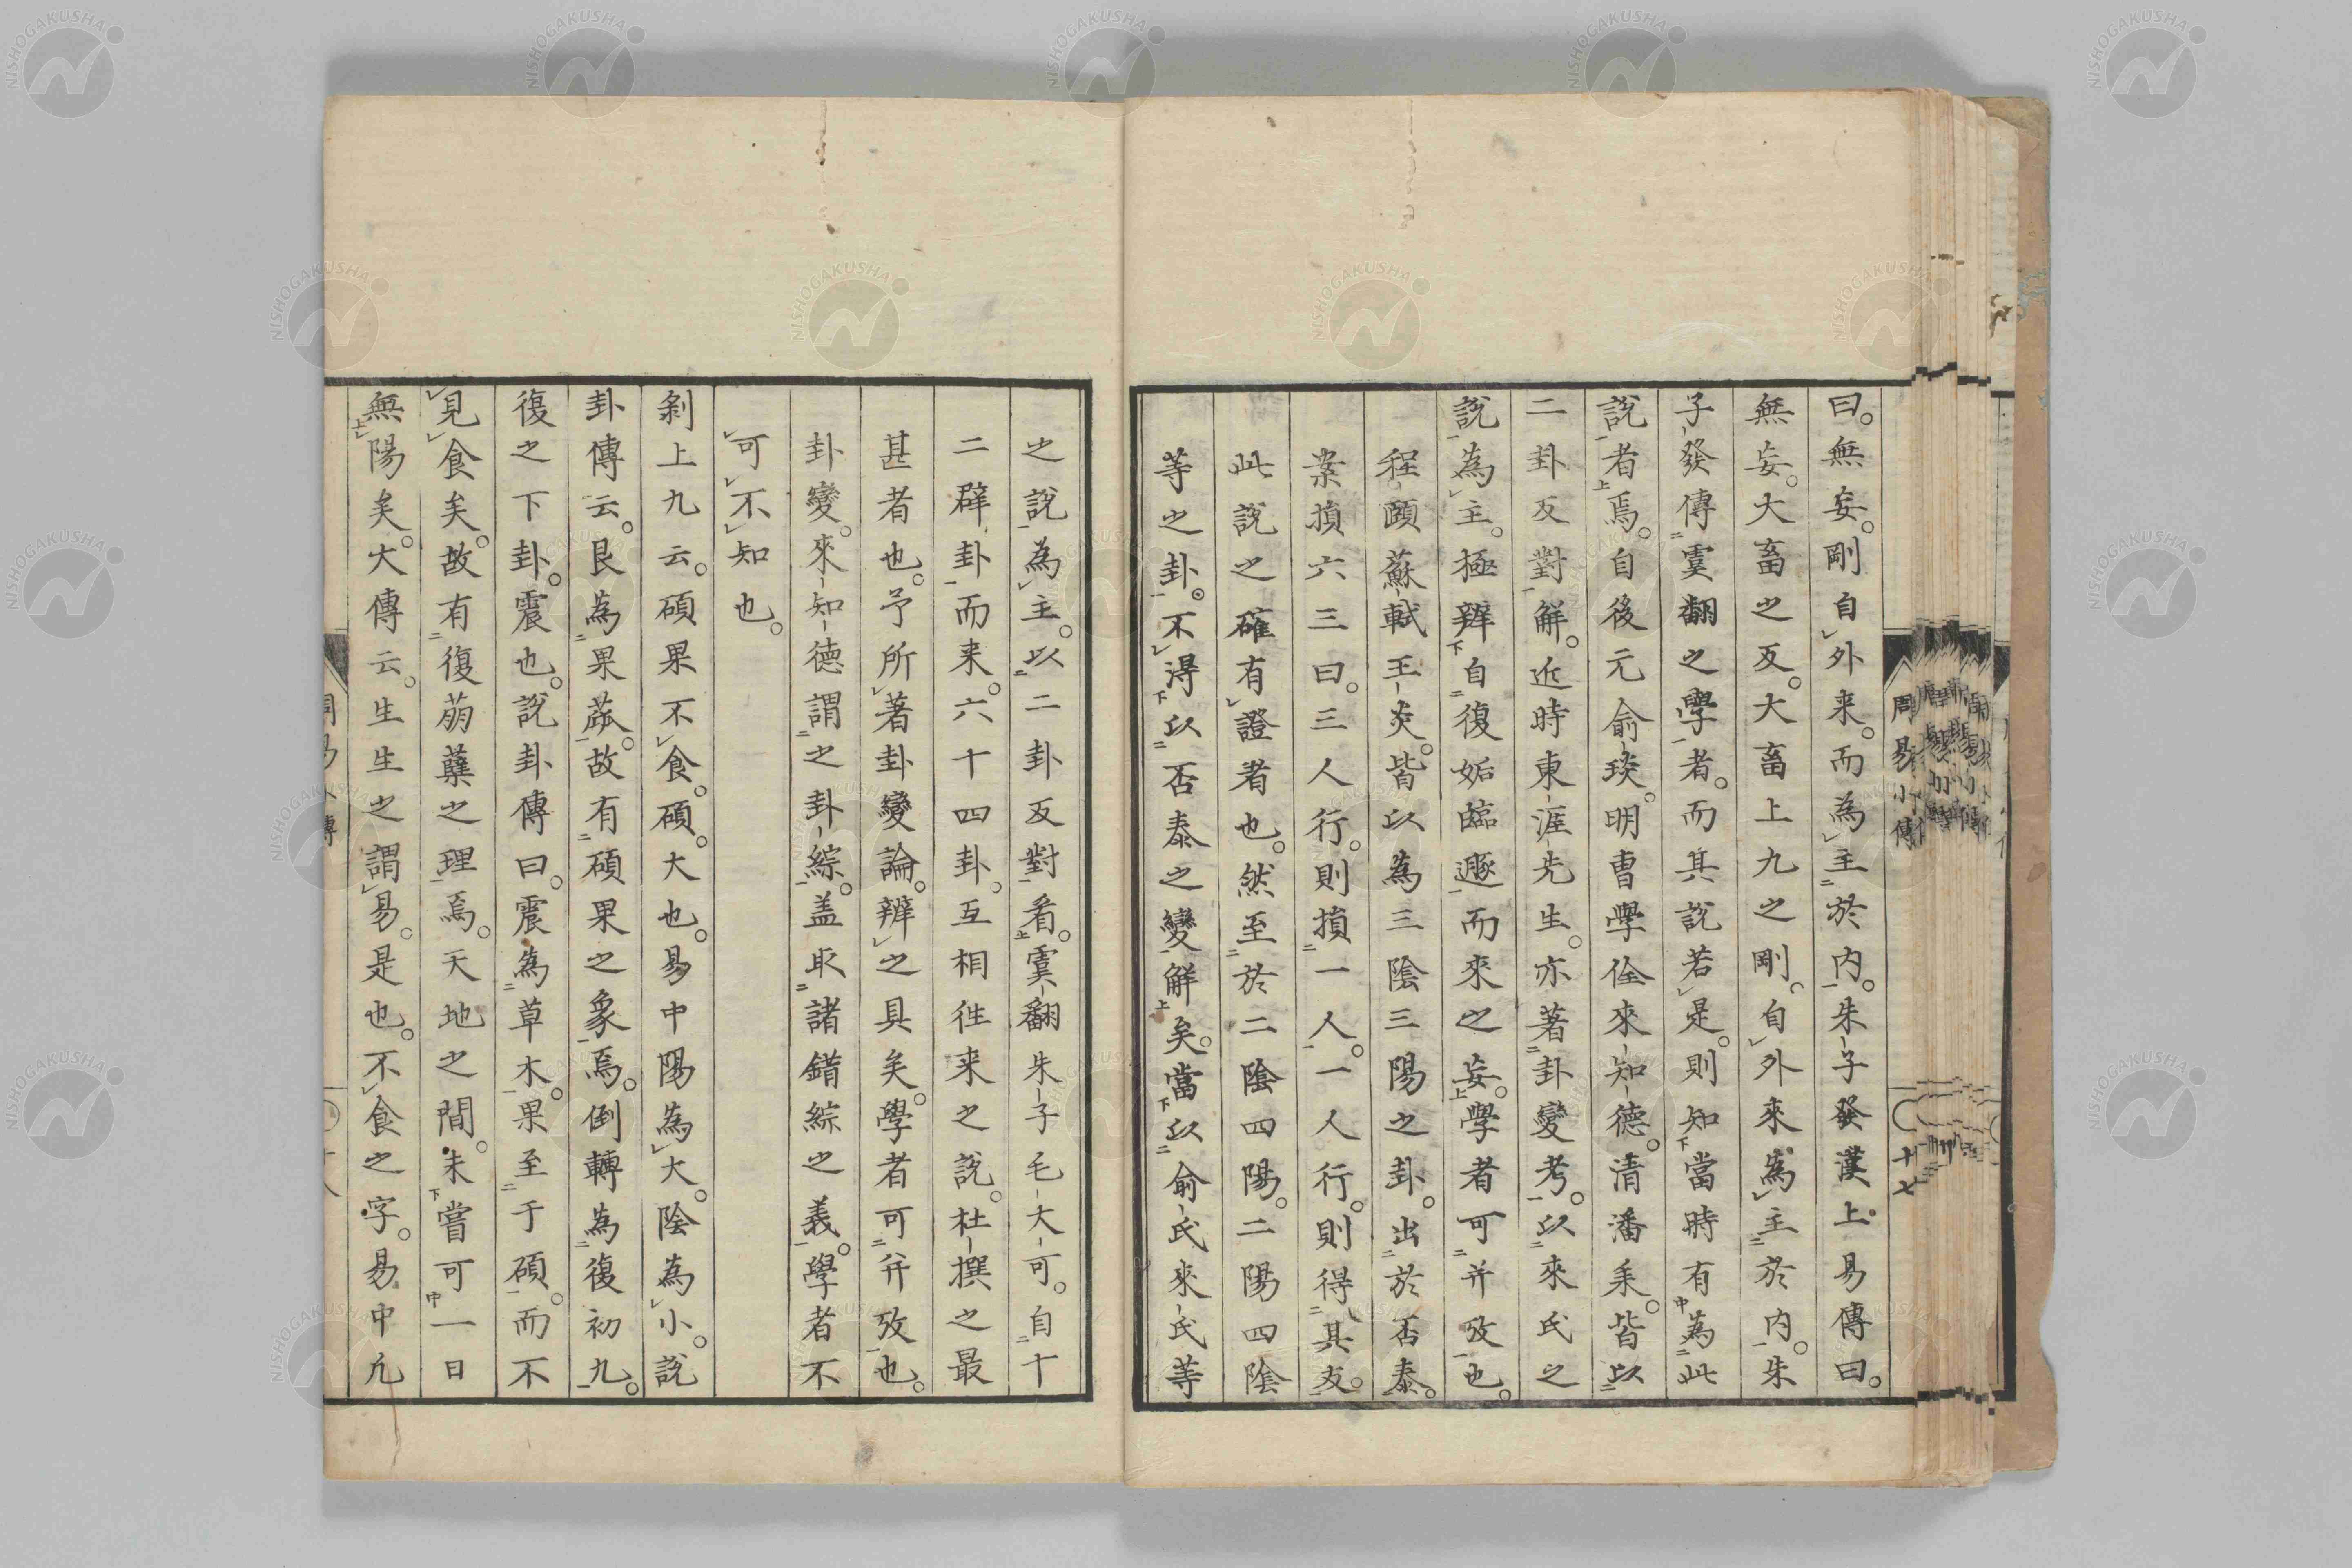 曰。無妄。剛自外来。而為主於内。朱子發漢上易傳曰。
無妄。大畜之反。大畜上九之剛。自外來為主於内。朱
子發傳虞翻之學者。而其説若是。則知當時有為此
説者焉。自後元俞琰。明曹學佺來知德。清潘耒。皆以
二卦反對解。近時東涯先生。亦著卦變考。以來氏之
説為主。極辨自復姤臨遯而來之妄。學者可并攷也。
程頤蘇軾王炎。皆以為三陰三陽之卦。出於否泰。
案損六三曰。三人行。則損一人。一人行。則得其友。
此説之確有證者也。然至於二陰四陽。二陽四陰
等之卦。不得以否泰之變解矣。當以俞氏來氏等
周易小傳
十七
之説為主。以二卦反對看。虞翻朱子毛大可。自十
二辟卦而来。六十四卦。互相往来之説。杜撰之最
甚者也。予所著卦變論。辨之具矣。學者可并攷也。
卦變。來知德謂之卦綜。盖取諸錯綜之義。學者不
可不知也。
剝上九云。碩果不食。碩。大也。易中陽為大。陰為小。説
卦傳云。艮為果蓏。故有碩果之象焉。倒轉為復初九。
復之下卦。震也。説卦傳曰。震為草木。果至于碩。而不
見食矣。故有復萠蘖之理焉。天地之間。未嘗可一日
無陽矣。大傳云。生生之謂易。是也。不食之字。易中凢